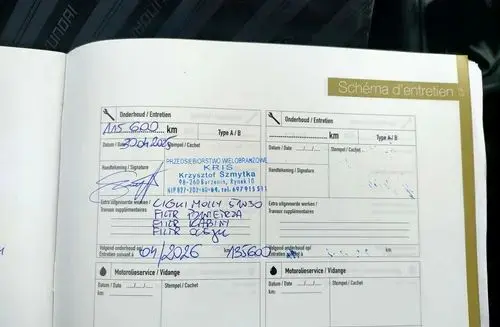 HYUNDAI
Schéma d'entretien
Onderhoud / Entretien
115 600 km
Type A / B
Datum / Date 30.04.2025
Stempel / Cachet
Handtekening / Signature
PRZEDSIEBIORSTWO WIELOBRANŻOWE
KRIS
Krzysztof Szmytka
98-260 Burzenin, Rynek 10
Extra uitgevoerde werken /
Travaux supplémentaires
LIQUI MOLLY 5W30
FILTR POWIETRZA
FILTR KABINY
FILTR oleju
Volgend onderhoud op/
Entretien suivant à
04/2026
135600
km
Onderhoud / Entretien
km
Type A / B
Datum / Date
Stempel / Cachet
Handtekening / Signature
Extra uitgevoerde werken /
Travaux supplémentaires
Volgend onderhoud op/
Entretien suivant à
km
Motorolieservice / Vidange
Datum / Date
Stempel / Cachet
km
Motorolieservice / Vidange
Datum / Date
Stempel / Cachet
km